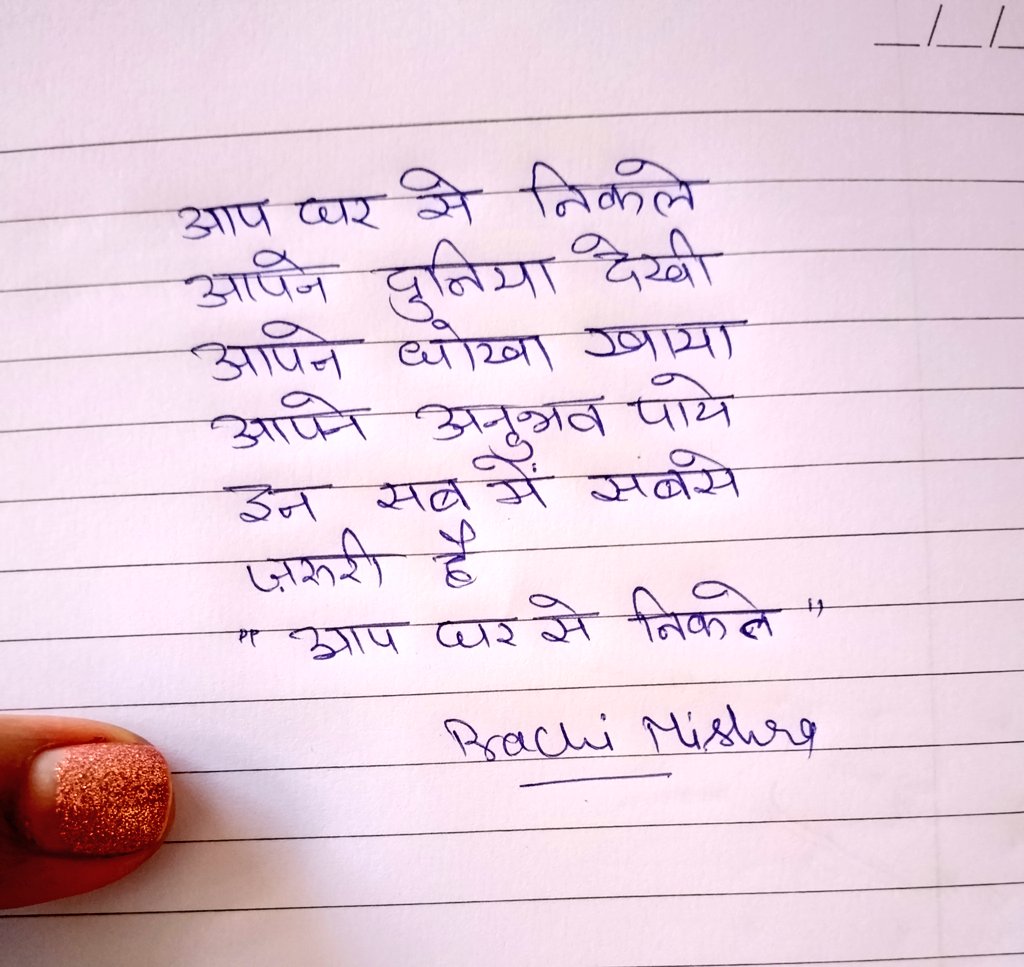 आप घर से निकले
आपने दुनिया देखी
आपने धोखा खाया
आपने अनुभव पाये
इन सब में सबसे
ज़रुरी है
" आप घर से निकले "
Prachi Mishra